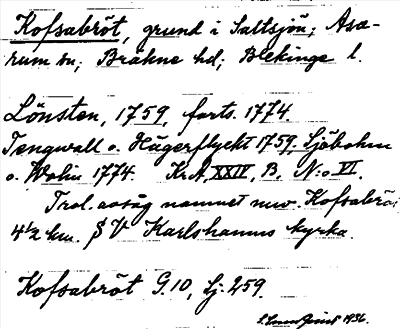 Kofsabröt, grund i Saltsjön; Asa-
rum sn; Bräkne hd; Blekinge l.
Lönsten, 1759, forts. 1774
Tengwall o. Hägerflyckt 1759, Sjöbohm
o. Wolin 1774. Kr.A, XXIV, B, N:o VI.
Trol. avsåg namnet nuv. Kofsabröt
4 1/2 km. S V Karlshamns kyrka.
Kofsabröt G.10, Lj: 259.
1936.